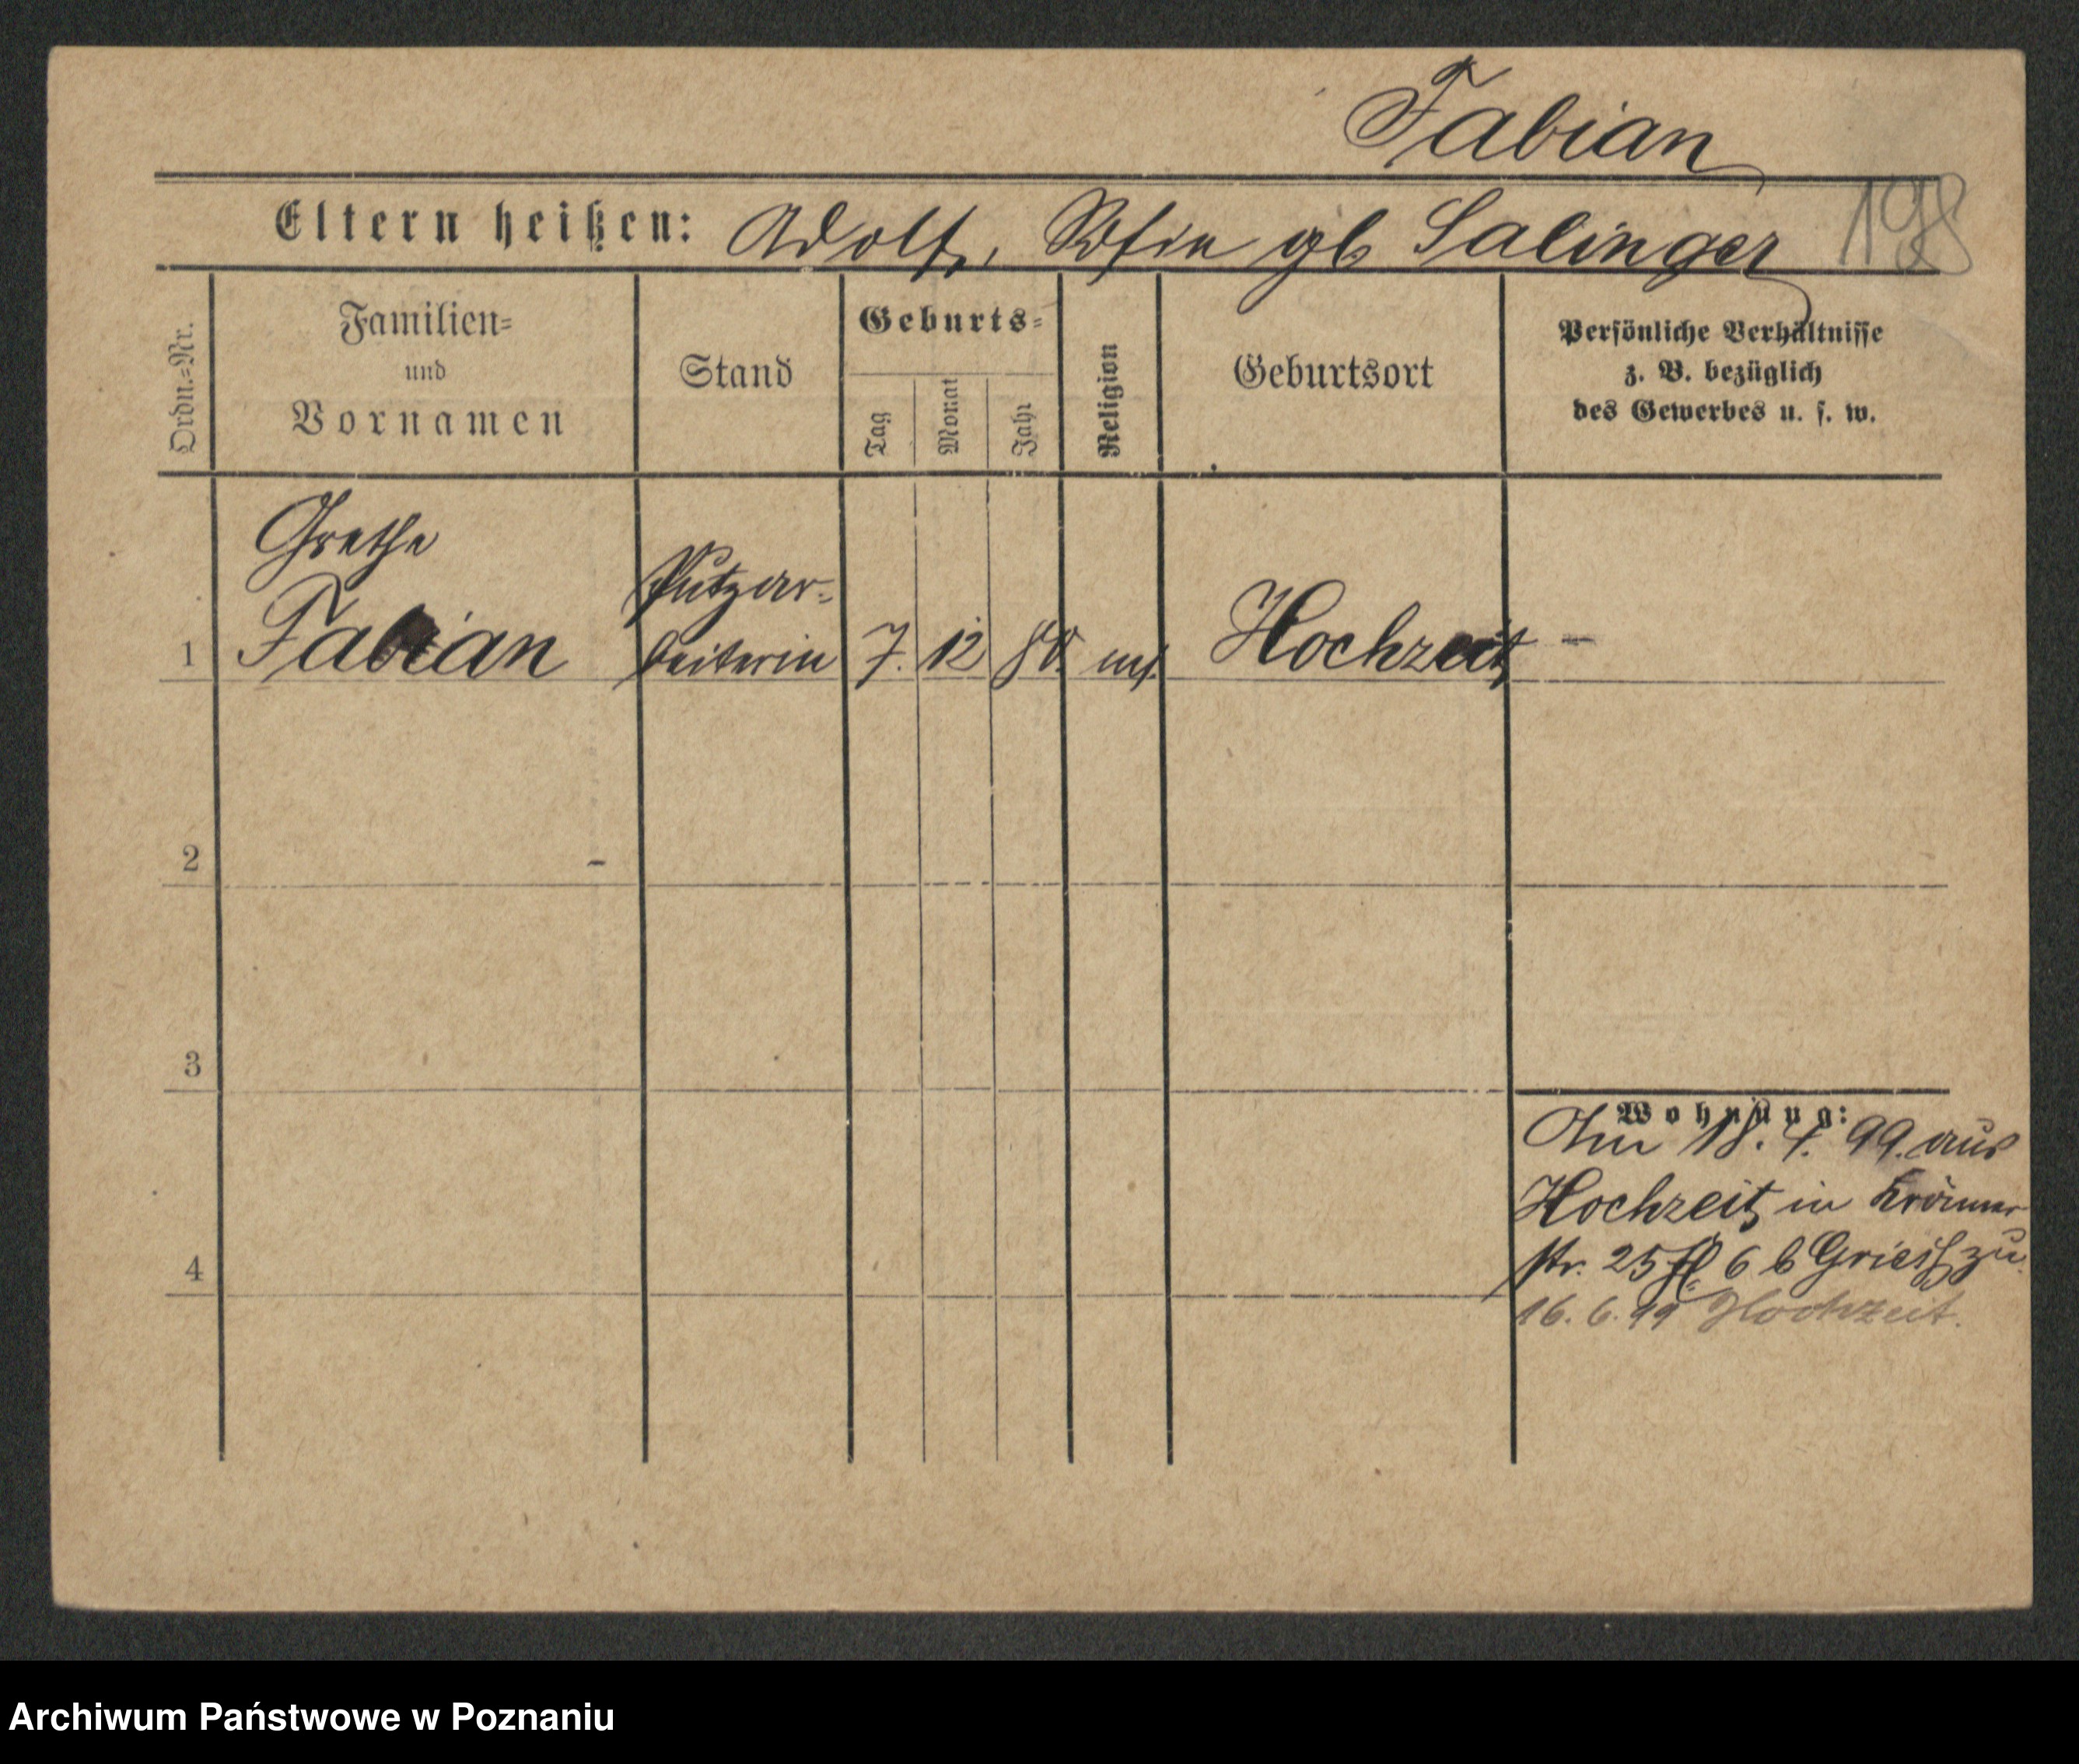 Fabian
Eltern heißen: Adolf, Sofie gb Salinger 198
Ordn.-Nr.
Familien-
und
Vornamen
Stand
Geburts-
Tag
Monat
Jahr
Religion
Geburtsort
Persönliche Verhältnisse
z. B. bezüglich
des Gewerbes u. s. w.
Grethe
Putzar-
1 Fabian beiterin 7. 12 80. mos. Hochzeit –
2
3
Wohnung:
Am 18. 4. 99. aus
Hochzeit in Krämer
4
str. 25 6 b Griess zu.
16. 6. 99 Hochzeit.
Archiwum Państwowe w Poznaniu